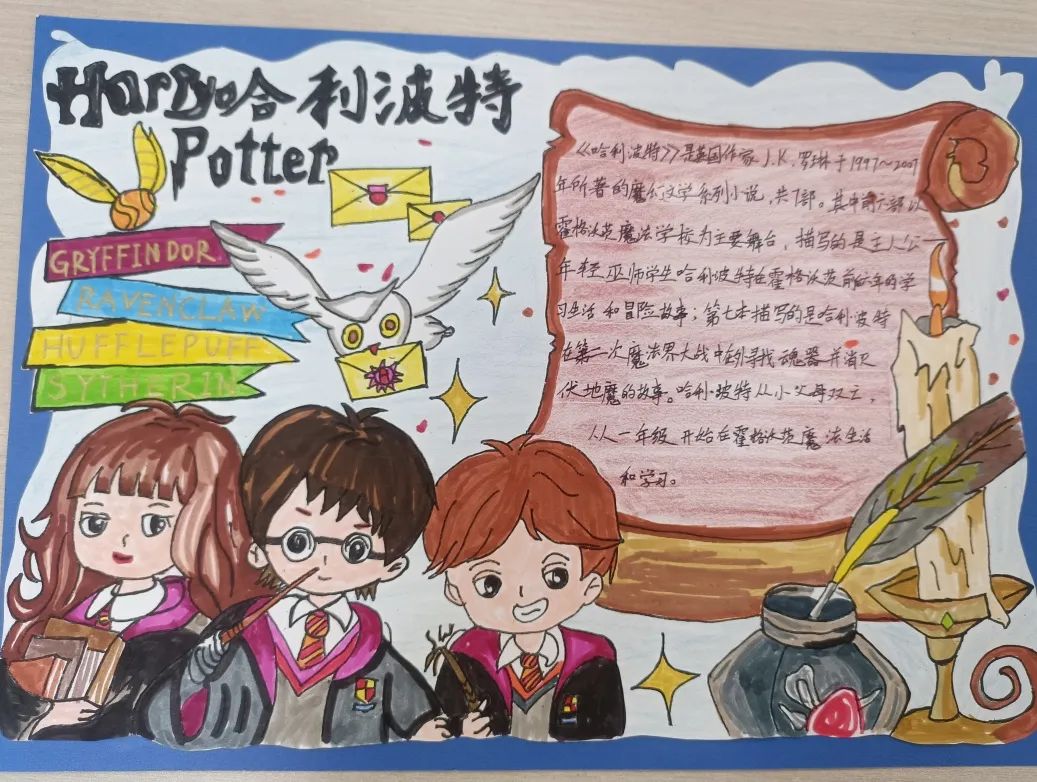 Harry哈利波特
Potter
GRYFFINDOR
RAVENCLAW
HUFFLEPUFF
SYTHERIN
《哈利波特》是英国作家J.K.罗琳于1997~2007
年所著的魔幻文学系列小说，共7部。其中前六部以
霍格沃茨魔法学校为主要舞台，描写的是主人公一
年轻巫师学生哈利波特在霍格沃茨前六年的学
习生活和冒险故事；第七本描写的是哈利波特
在第二次魔法界大战中在外寻找魂器并消灭
伏地魔的故事。哈利·波特从小父母双亡，
从人一年级开始在霍格沃茨魔法生活
和学习。